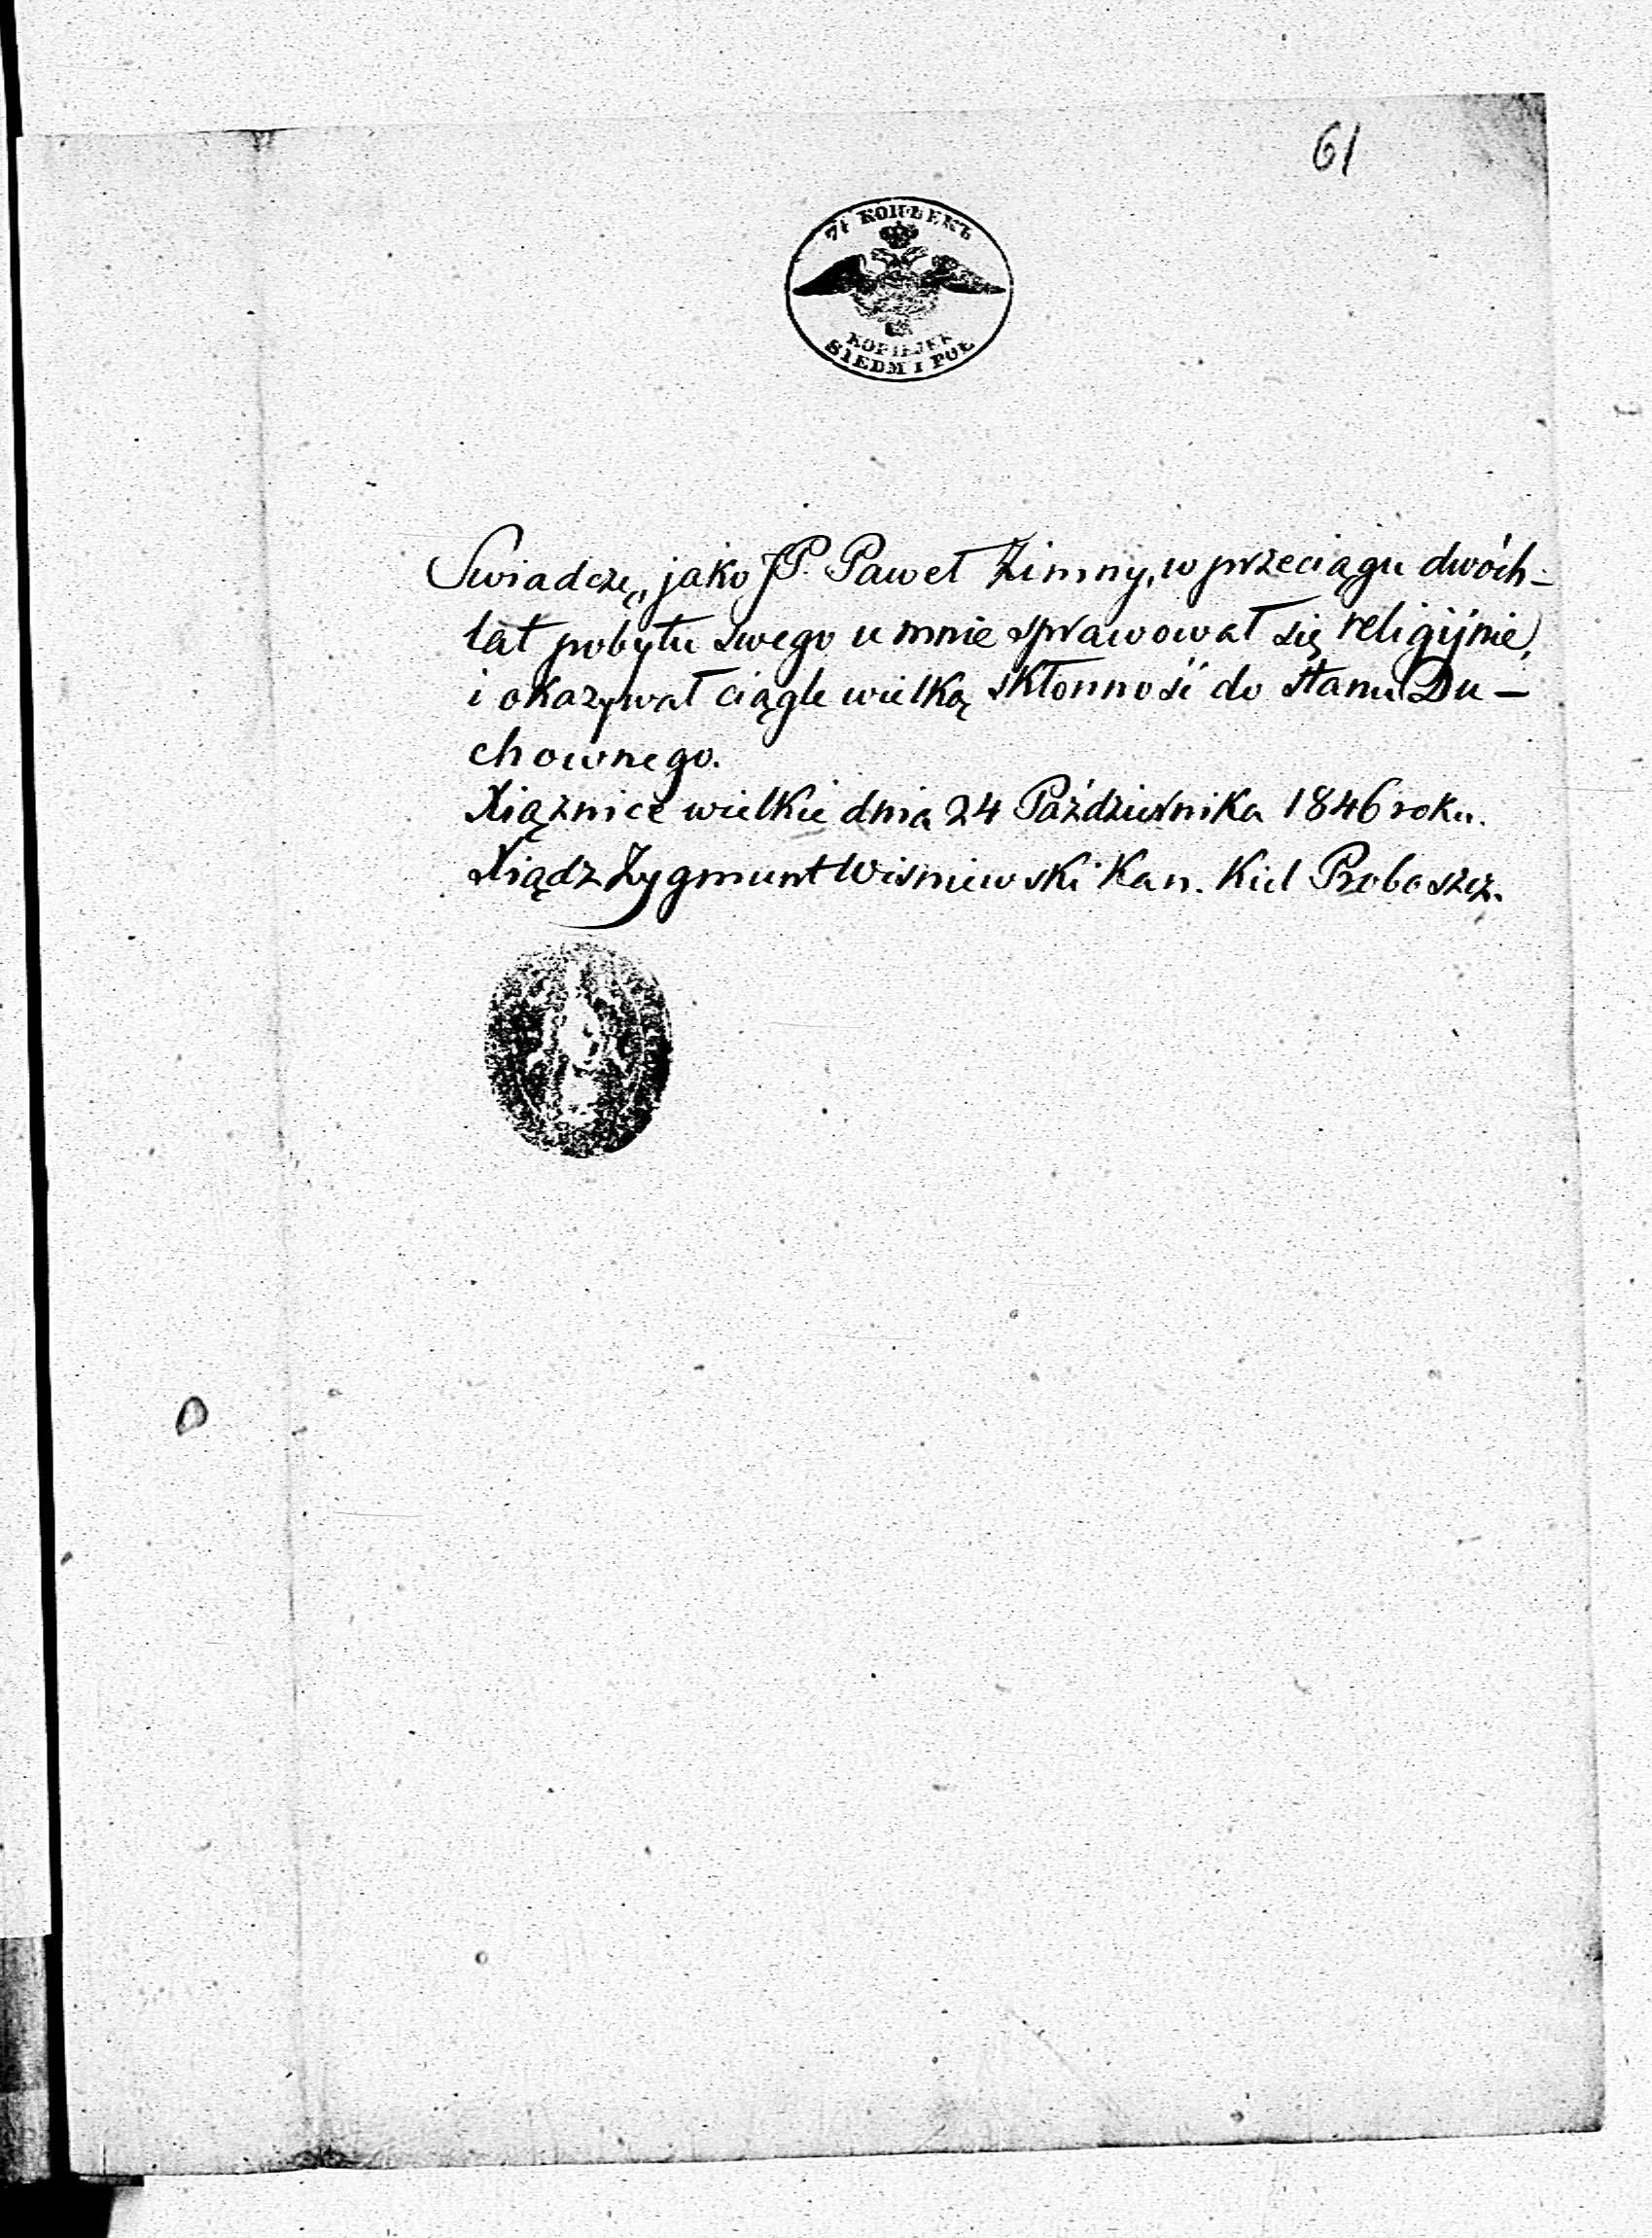 61
7½ КОПѢЕКЪ
KOPIEJEK
SIEDM I PÓŁ
Swiadczę, jako JP. Paweł Zimny, w przeciągu dwóch-
lat pobytu swego u mnie sprawował się religijnie,
i okazywał ciągle wielką skłonność do stanu Du-
chownego.
Xiąznice wielkie dnia 24 Października 1846 roku.
Xiądz Zygmunt Wisniewski Kan. Kiel Proboszcz.